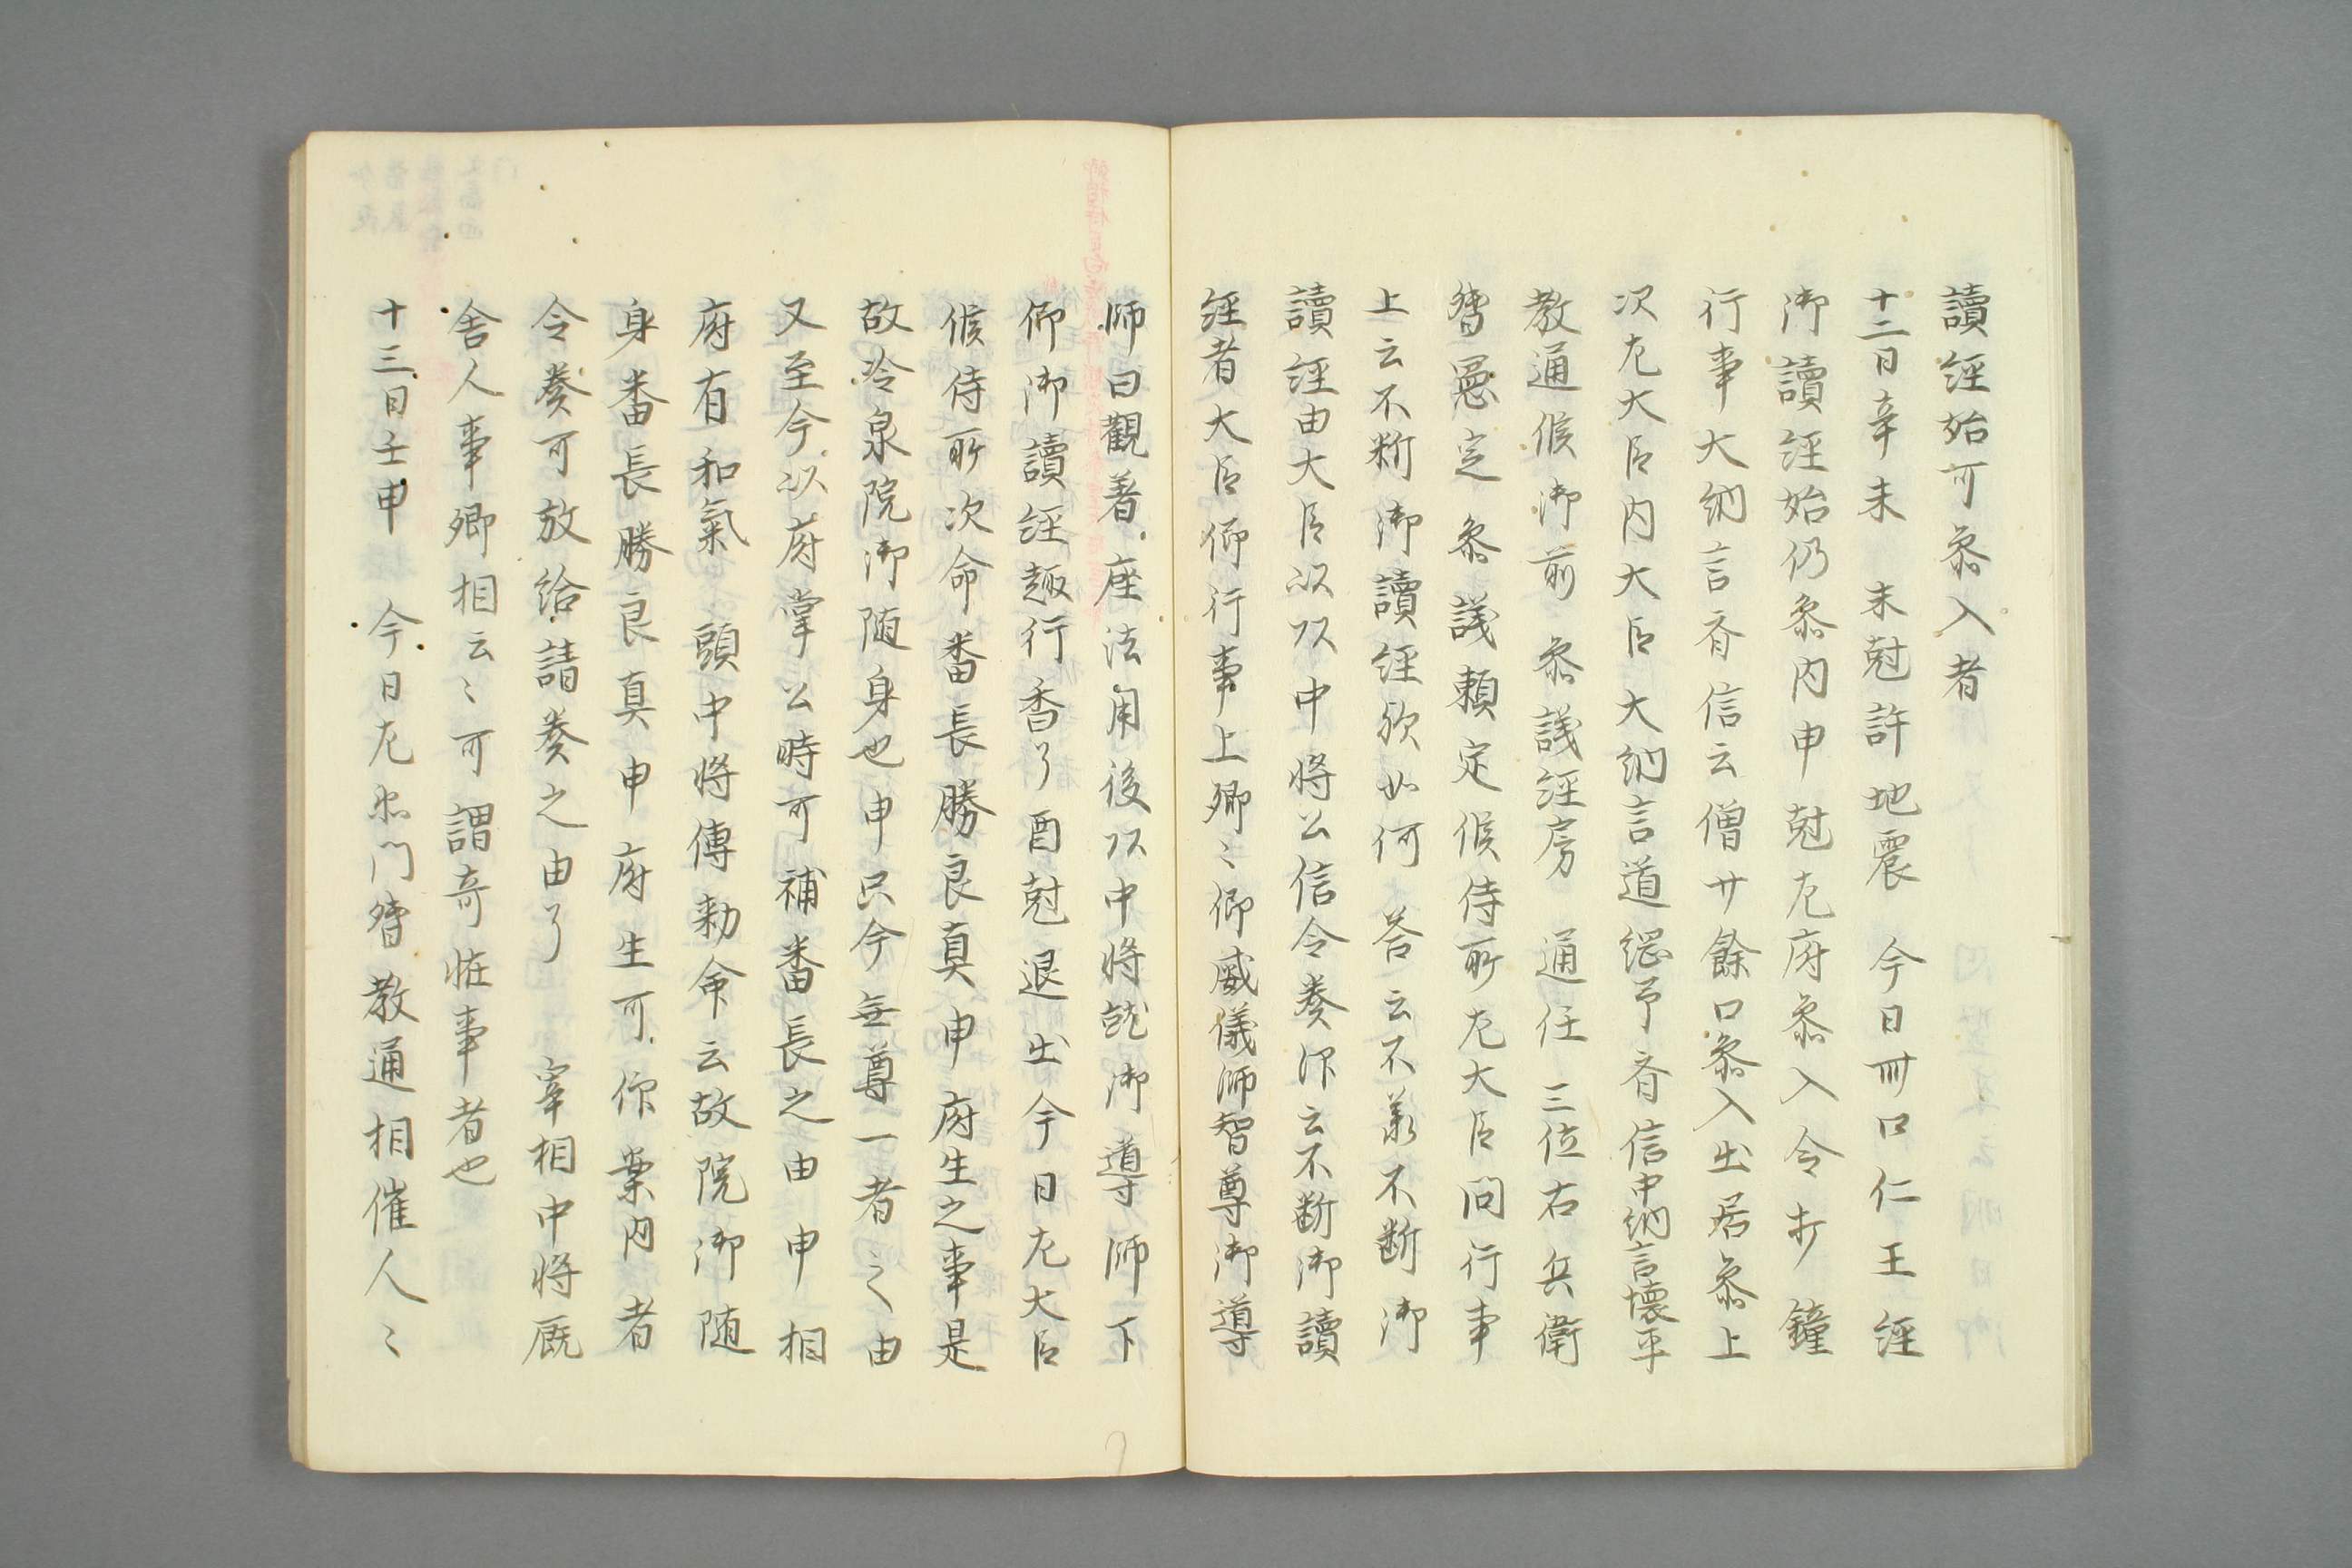 讀經始可參入者
十二日辛未　未尅許地震　今日卌口仁王經
御讀經始仍參内申尅左府參入令打鐘
行事大納言斉信云僧廿餘口參入出居參上
次左大臣内大臣大納言道綱予斉信中納言懷平
教通候御前參議經房　通任三位右兵衛
督憲定參議頼定候侍所左大臣問行事
上云不断御讀經欤如何　答云不承不断御
讀經由大臣以以中将公信令奏仰云不断御讀
經者大臣仰行事上卿〻仰威儀師智尊御導
師曰觀着座法用後以中将就御導師下
仰御讀經趣行香了酉尅退出今日左大臣
候侍所次命番長勝良真申府生之事是
故冷泉院御随身也申只今無尊一者之由
又至今以府掌公時可補番長之由申相
府有和氣　頭中将傳勅命云故院御随
身番長勝良真申府生可仰案内者
令奏可放給請奏之由了　宰相中将厩
舎人事卿相云〻可謂奇恠事者也
十三日壬申　今日左衛門督教通相催人〻